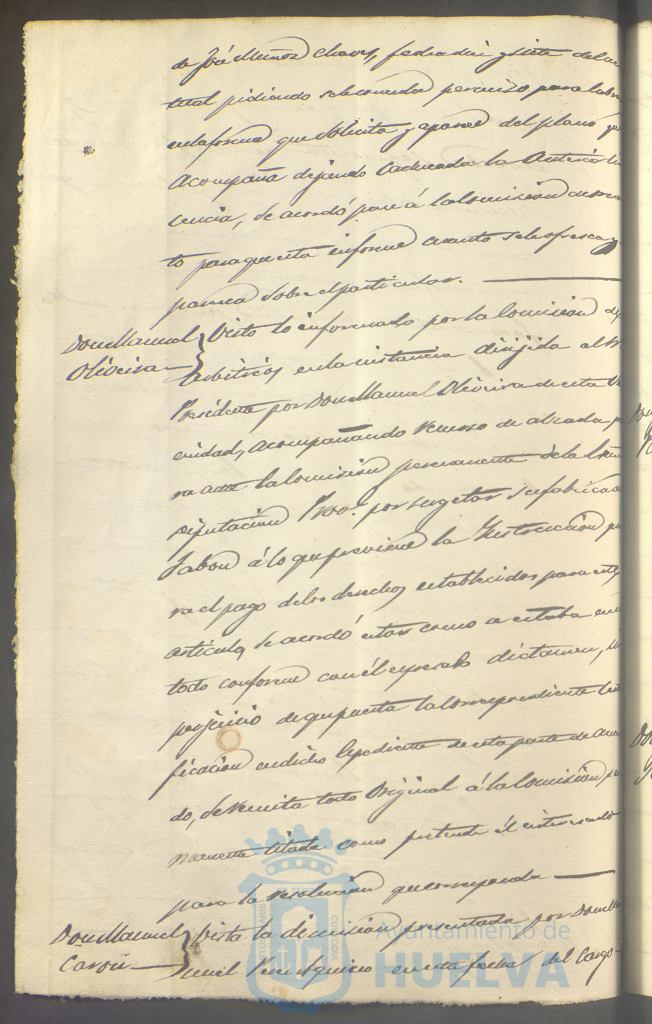 de José Muñoz Chaves, fecha diez y siete del ac
tual pidiendo se le conceda permiso para labra
en la forma que solicita y aparece del plano que
acompaña dejando caducada la anterior li
cencia, se acordó pase á la Comision de orna
to para que esta informe cuanto se le ofrezca y
parezca sobre el particular.
Don Manuel
Oliveira
Visto lo informado por la Comision de
arbitrios en la instancia dirijida al Sr
Presidente por Don Manuel Oliveira de esta Ve
cindad, acompañando recurso de alzada pa
ra ante la Comision permanente de la
Diputacion Prov.l por sugetar su fabrica de
Jabon á lo que previene la Instruccion pa
ra el pago de los derechos establecidos para este
artículo, se acordó estar como a estaba en un
todo conforme con él espresado dictamen, sin
perjuicio de que puesta la correspondiente certi
ficacion en dicho Espediente de esta parte de acuer
do, se remita todo original á la Comision per
manente citada como pretende él interesado
para la resolucion que corresponda
Don Manuel
Visto la dimision presentada por Don Ma
nuel en esta fecha del Cargo
Ayuntamiento de
HUELVA